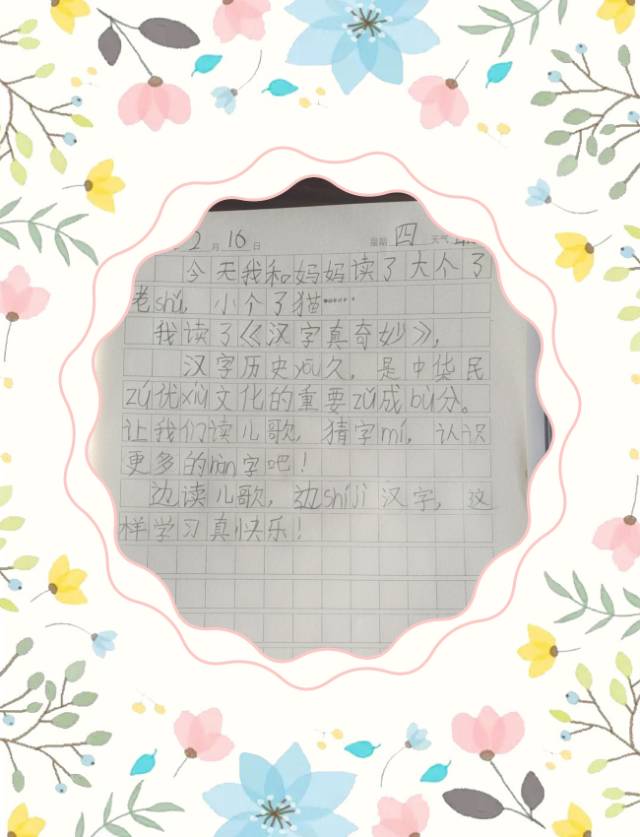 2月16日 星期四 天气
今天我和妈妈读了大个子
老shǔ,小个子猫……
我读了《汉字真奇妙》,
汉字历史yōu久,是中华民
zú优xiù文化的重要zǔ成bù分。
让我们读儿歌,猜字mí,认识
更多的hàn字吧!
边读儿歌,边shíjì汉字,这
样学习真快乐!